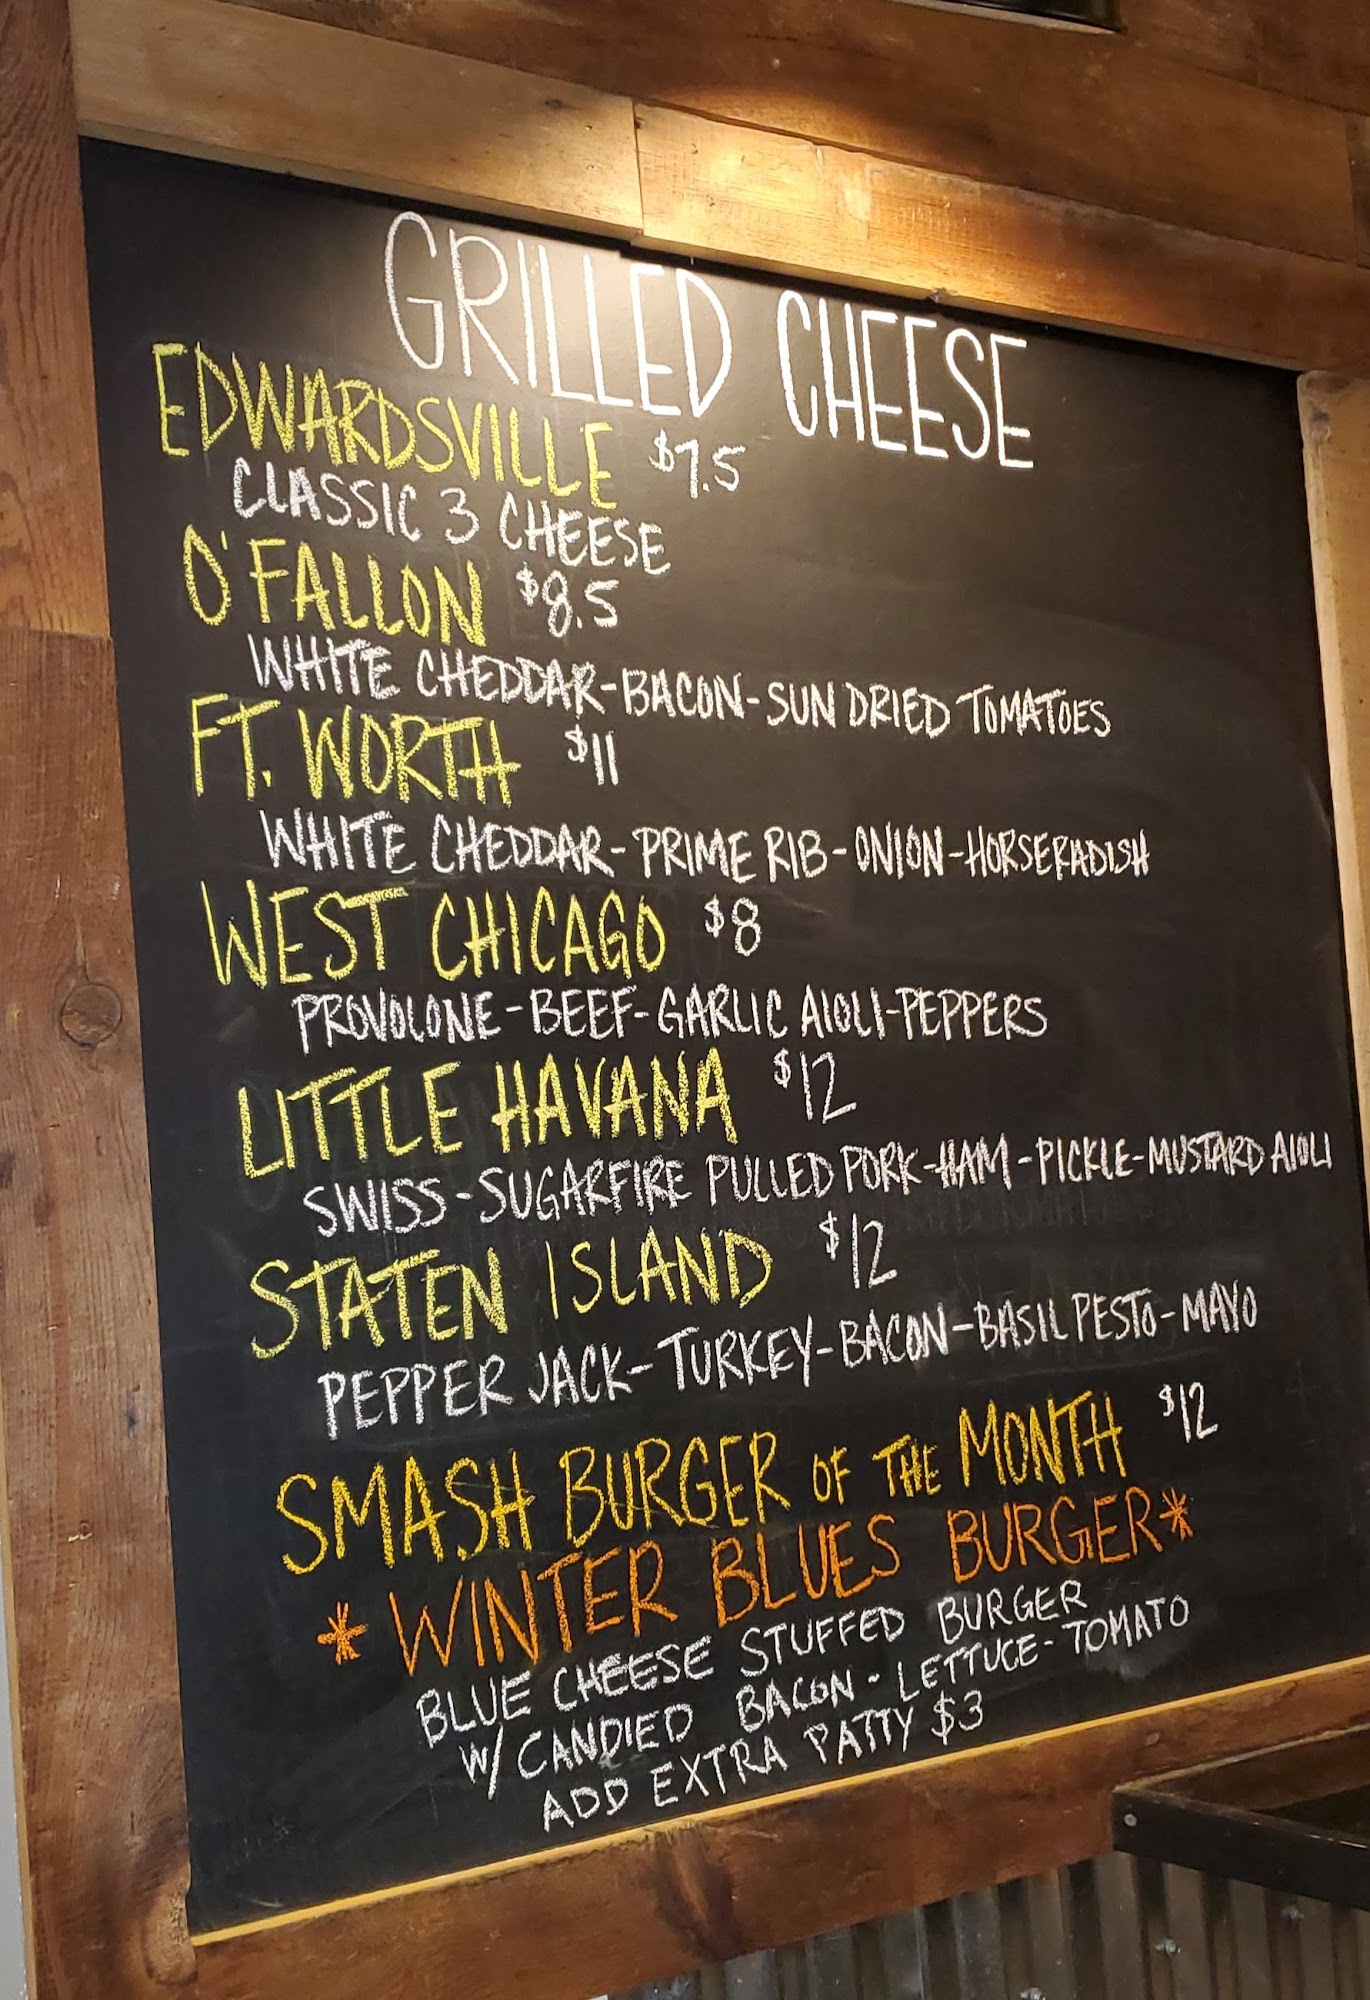 GRILLED CHEESE
EDWARDSVILLE $7.5
CLASSIC 3 CHEESE
O'FALLON $8.5
WHITE CHEDDAR-BACON-SUN DRIED TOMATOES
FT. WORTH $11
WHITE CHEDDAR-PRIME RIB-ONION-HORSERADISH
WEST CHICAGO $8
PROVOLONE-BEEF-GARLIC AIOLI-PEPPERS
LITTLE HAVANA $12
SWISS-SUGARFIRE PULLED PORK-HAM-PICKLE-MUSTARD AIOLI
STATEN ISLAND $12
PEPPER JACK-TURKEY-BACON-BASIL PESTO-MAYO
SMASH BURGER OF THE MONTH $12
*WINTER BLUES BURGER*
BLUE CHEESE STUFFED BURGER
W/ CANDIED BACON-LETTUCE-TOMATO
ADD EXTRA PATTY $3